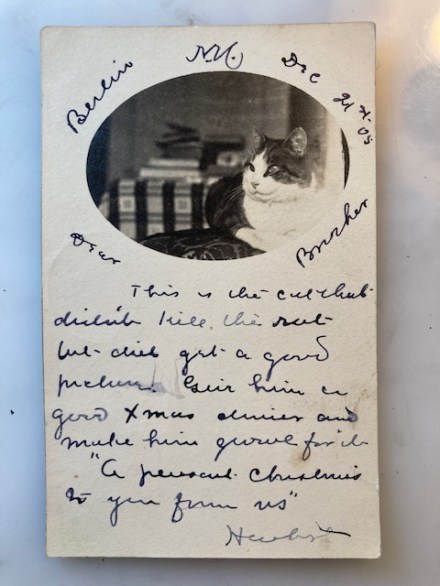 Berlin N.H. Dec 21st. 05
Dear Brother
This is the cat that
didn't kill the rat
but did get a good
picture. Give him a
good Xmas dinner and
make him growl for it
"A pleasant Christmas
to you from us"